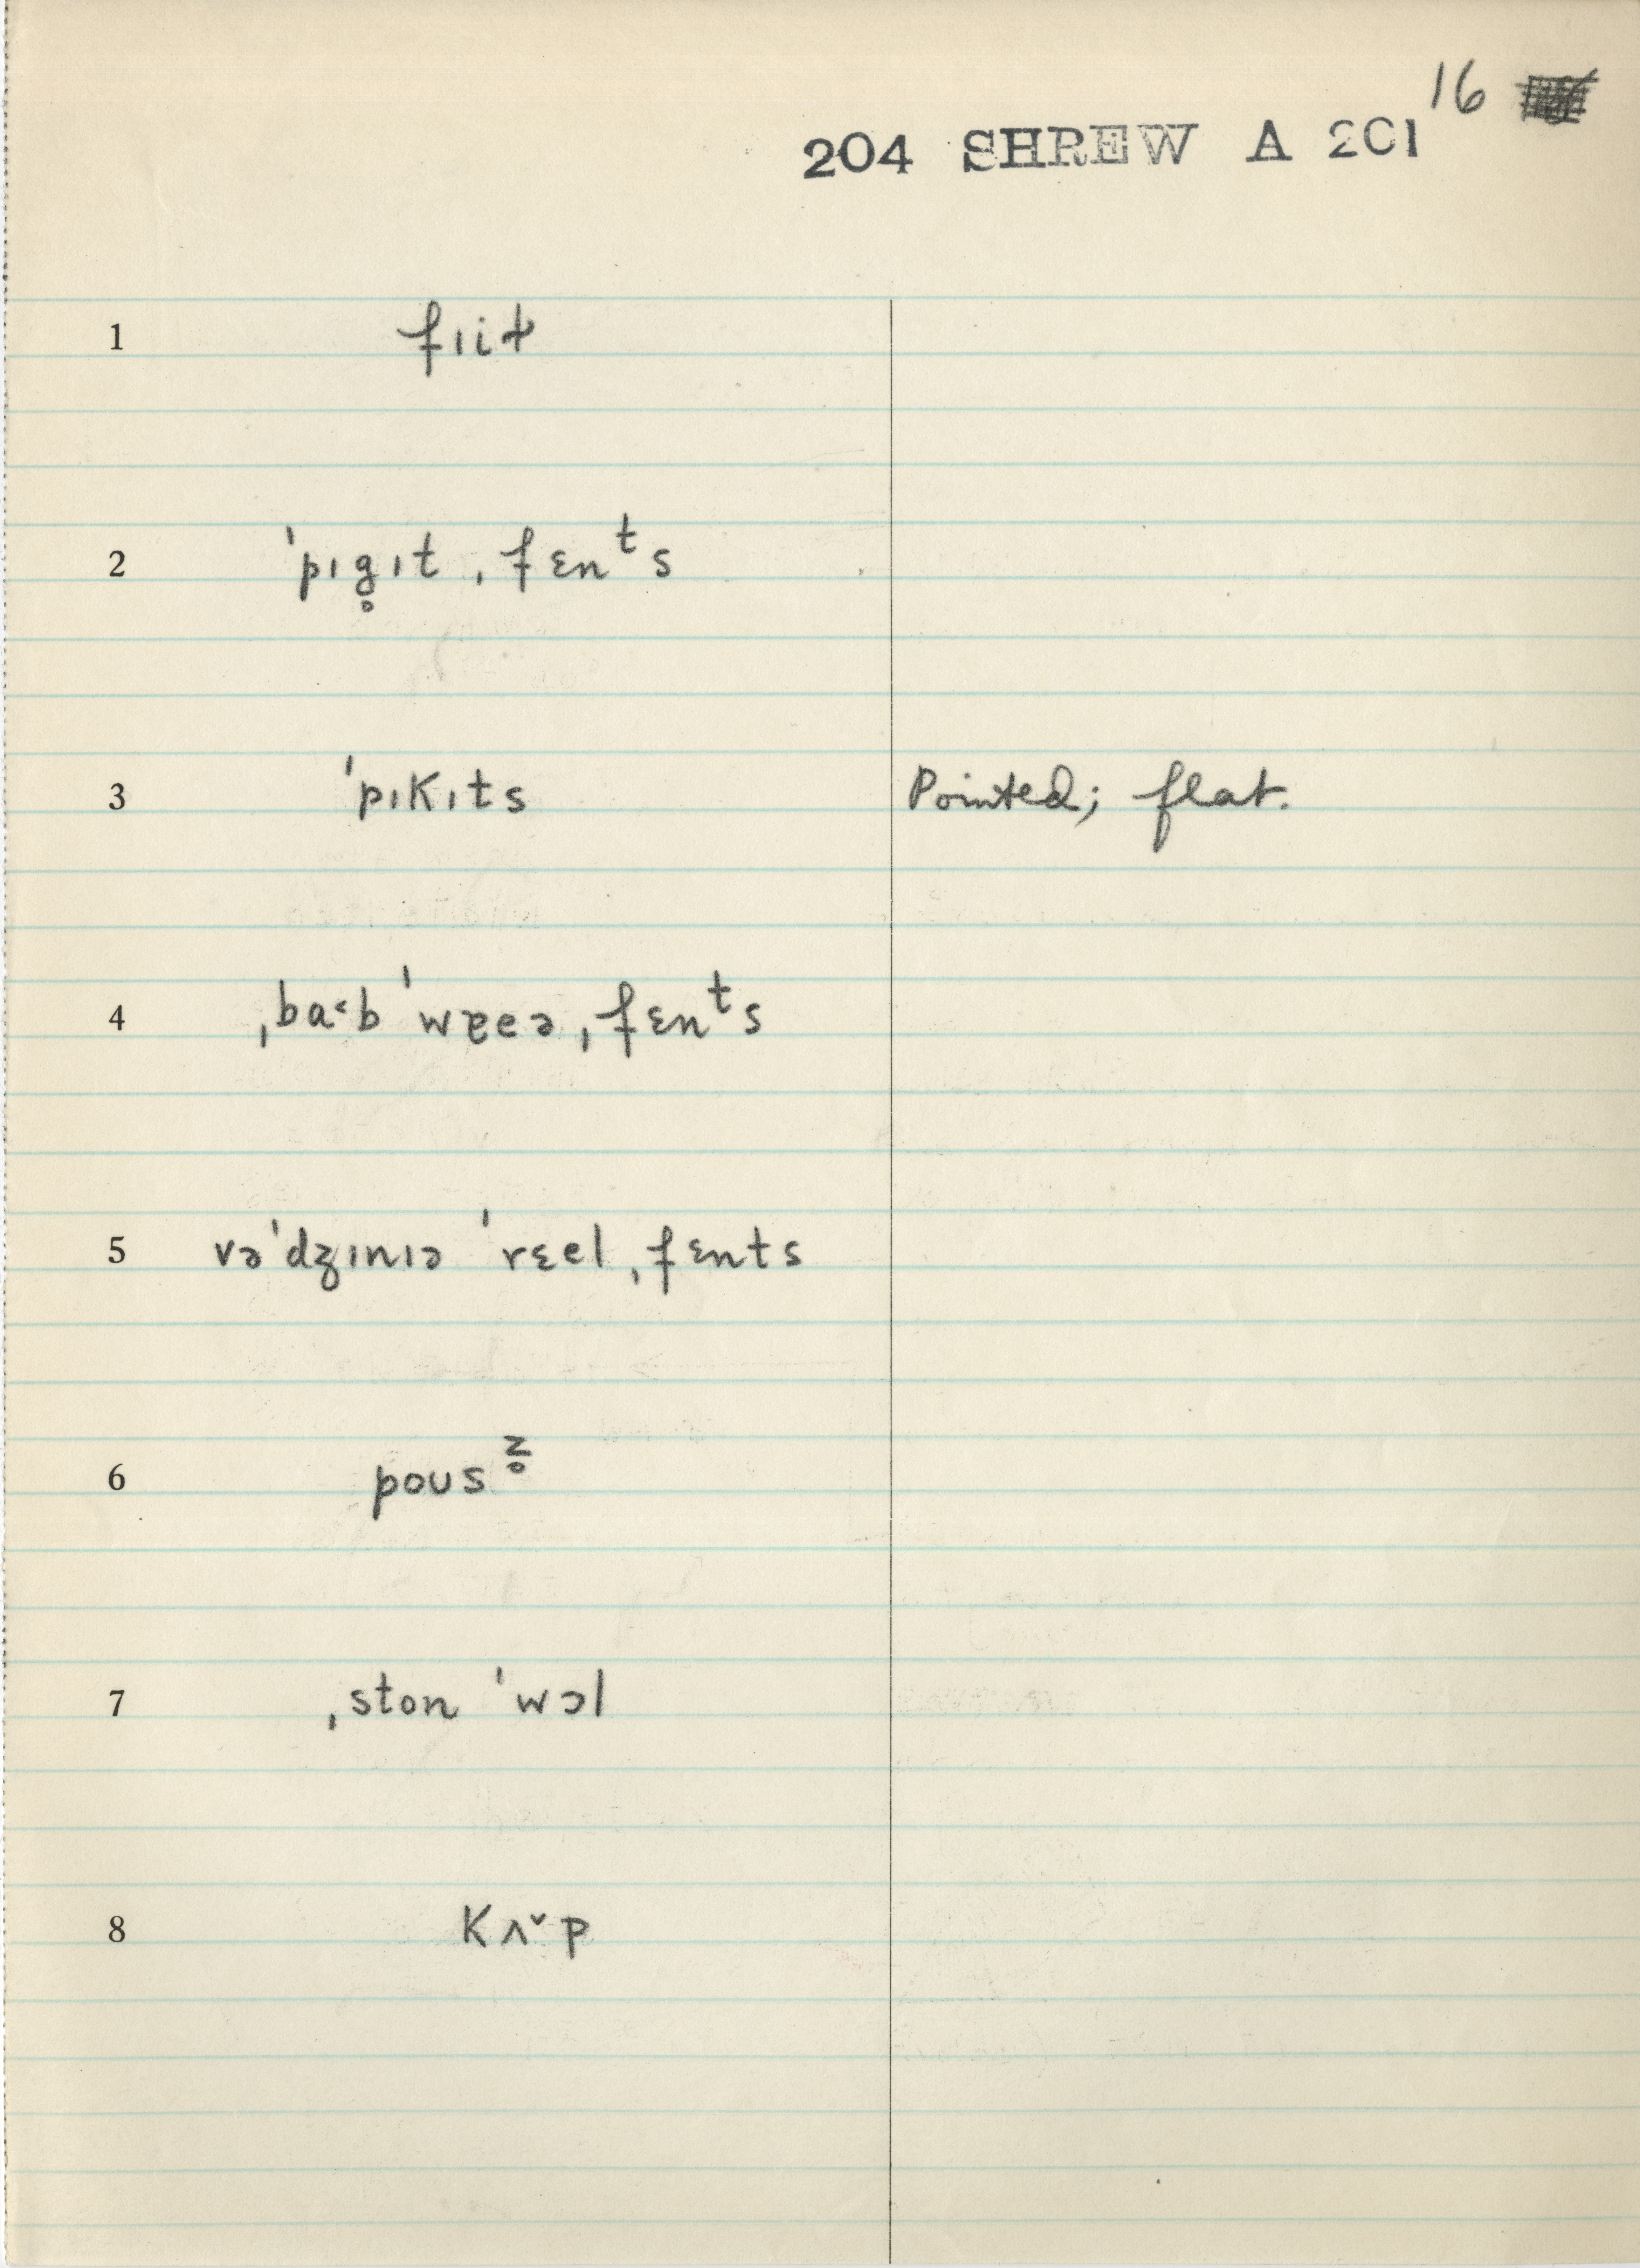 16
204 SHREW A 201
1 fɪit̬
2 ˈpɪg̥ɪt ˌfɛnᵗs
3 ˈpɪkɪts Pointed; flat.
4 ˌba˂b ˈwɐeə ˌfɛnᵗs
5 vəˈdʒɪnɪə ˈrɛel ˌfɛnts
6 poʊsᶻ̥
7 ˌston ˈwɔl
8 kʌ˅p